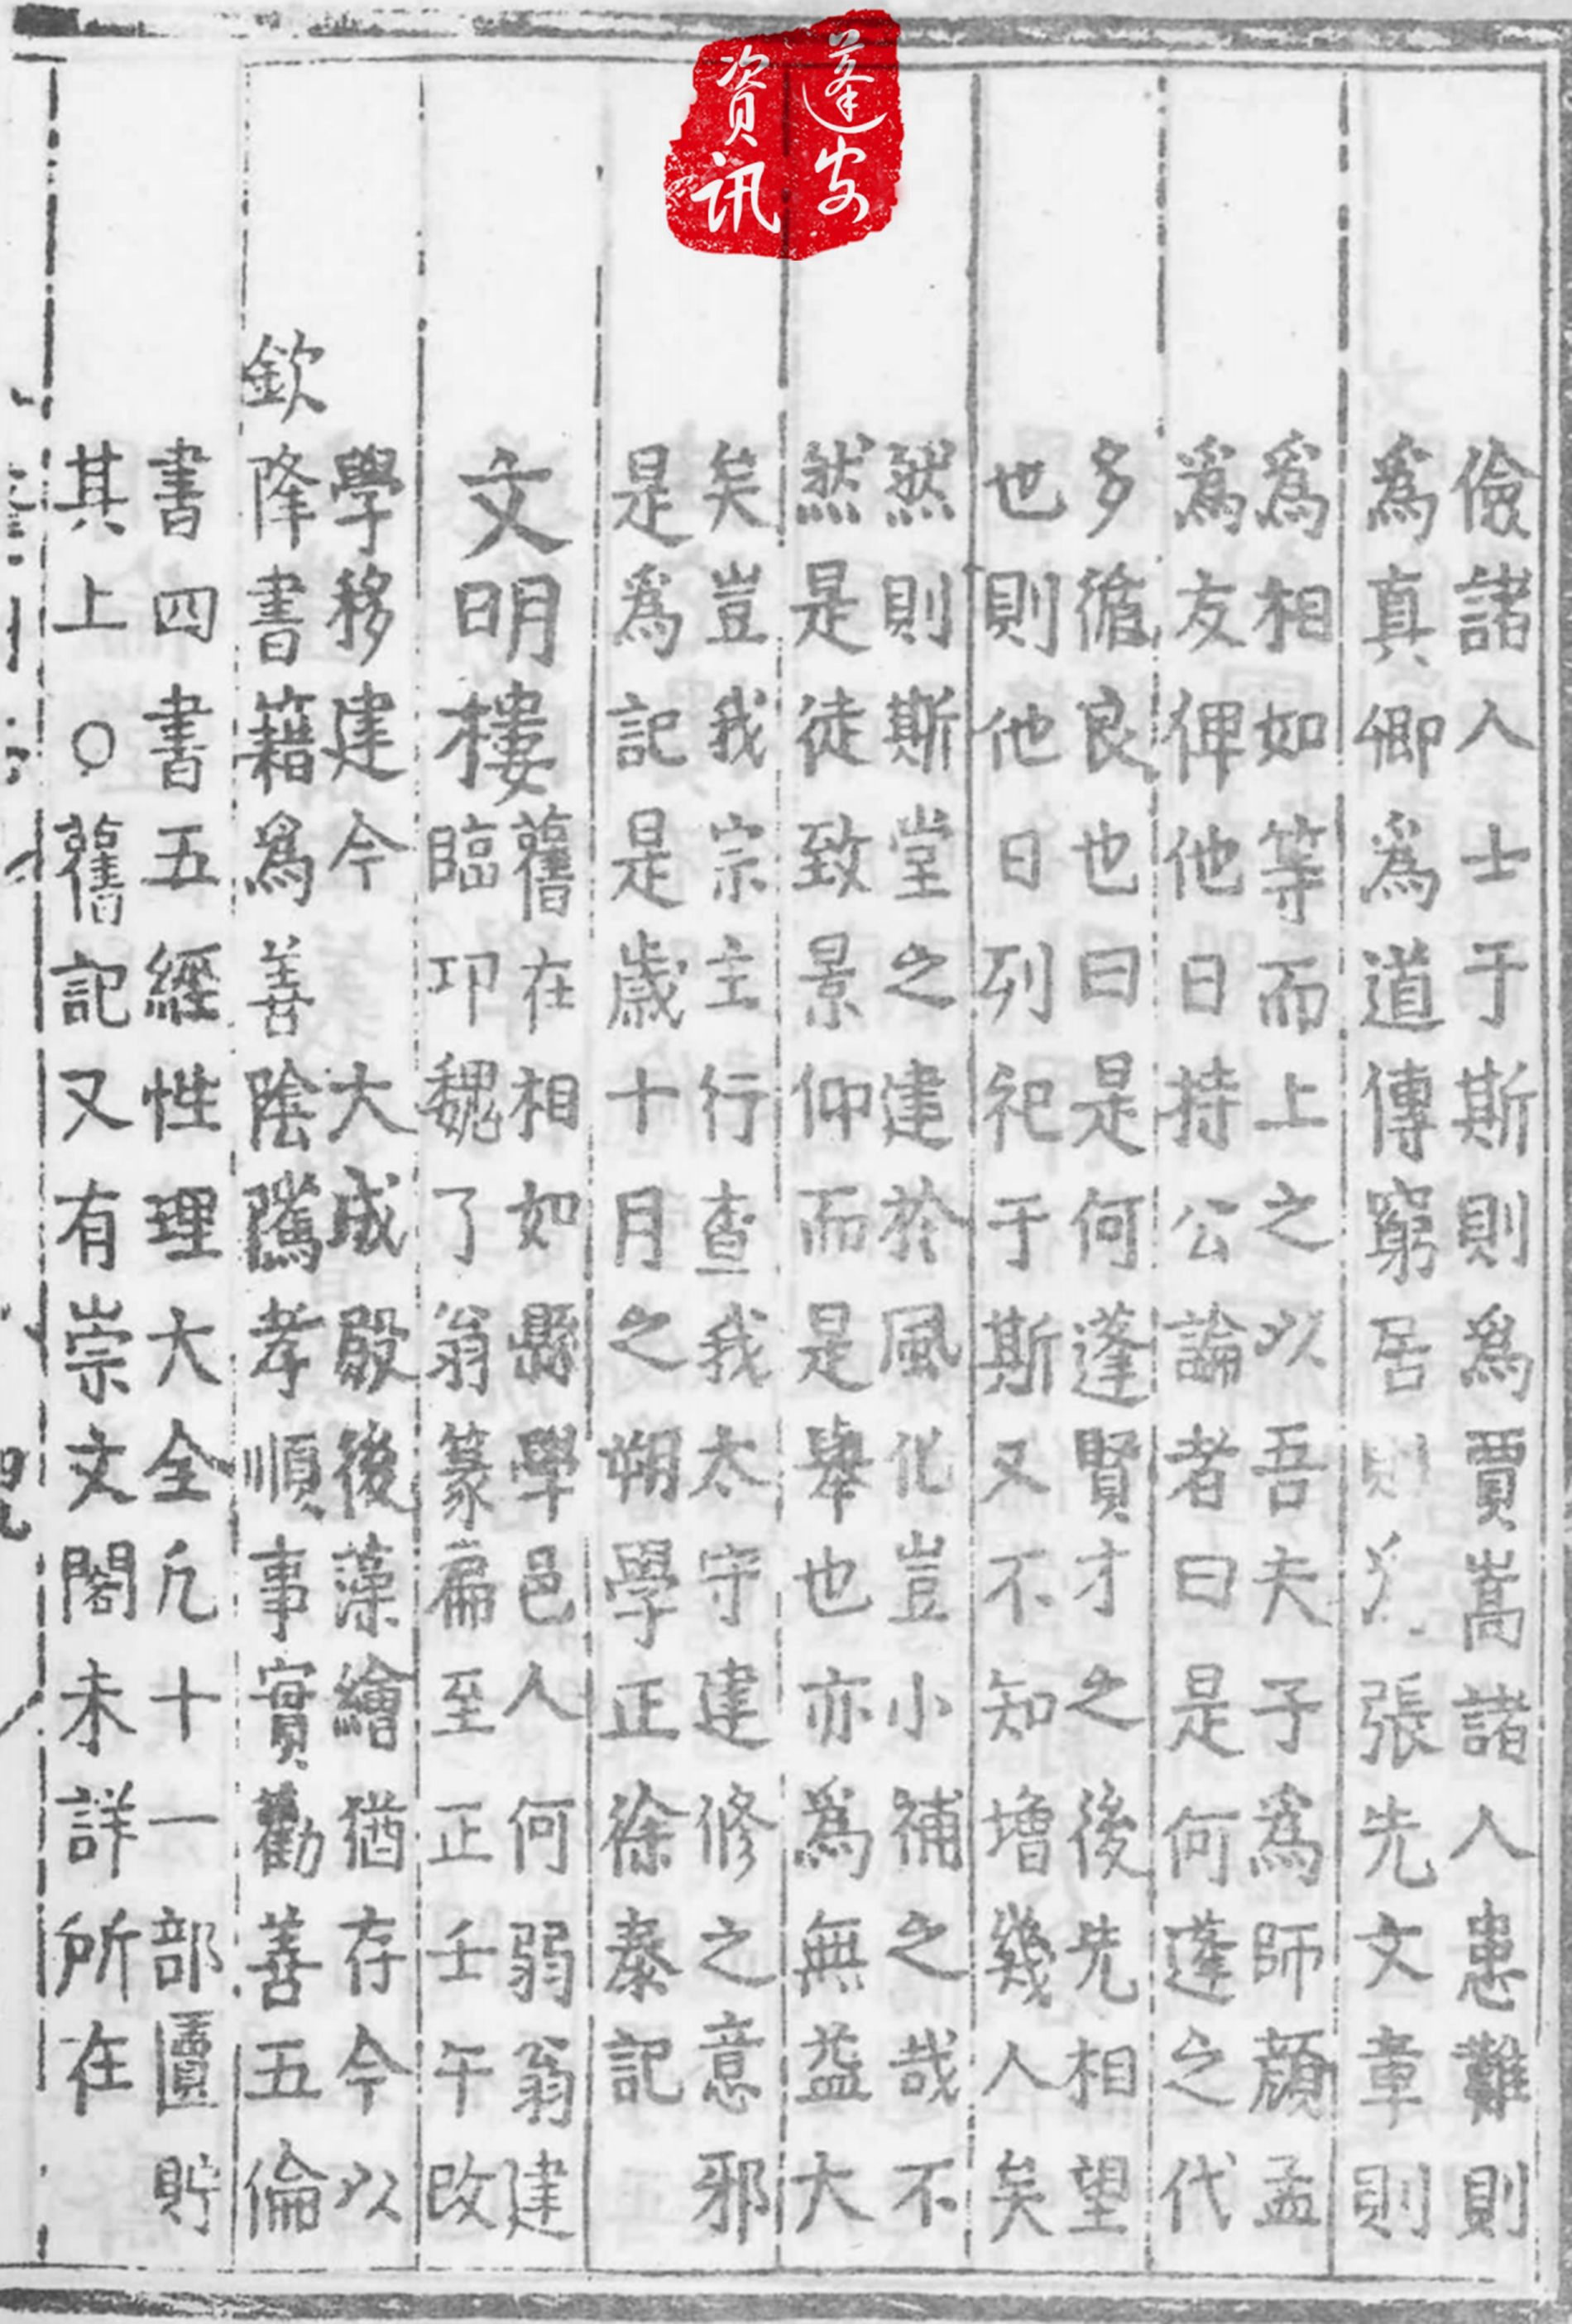 蓬安
資訊
儉諸人士于斯則爲賈嵩諸人患難則
爲真卿爲道傳窮居則 張先文章則
爲相如等而上之以吾夫子爲師顔孟
爲友俾他日持公論者曰是何蓬之代
多循良也曰是何蓬賢才之後先相望
也則他日列祀于斯又不知增幾人矣
然則斯堂之建於風化豈小補之哉不
然是徒致景仰而是舉也亦爲無益大
矣豈我宗主行查我太守建修之意邪
是爲記是歲十月之朔學正徐泰記
文明樓
舊在相如縣學邑人何弱翁建
臨邛魏了翁篆扁至正壬午改
學移建今 大成殿後藻繪猶存今以
欽降書籍爲善陰隲孝順事實勸善五倫
書四書五經性理大全凡十一部匱貯
其上○舊記又有崇文閣未詳所在